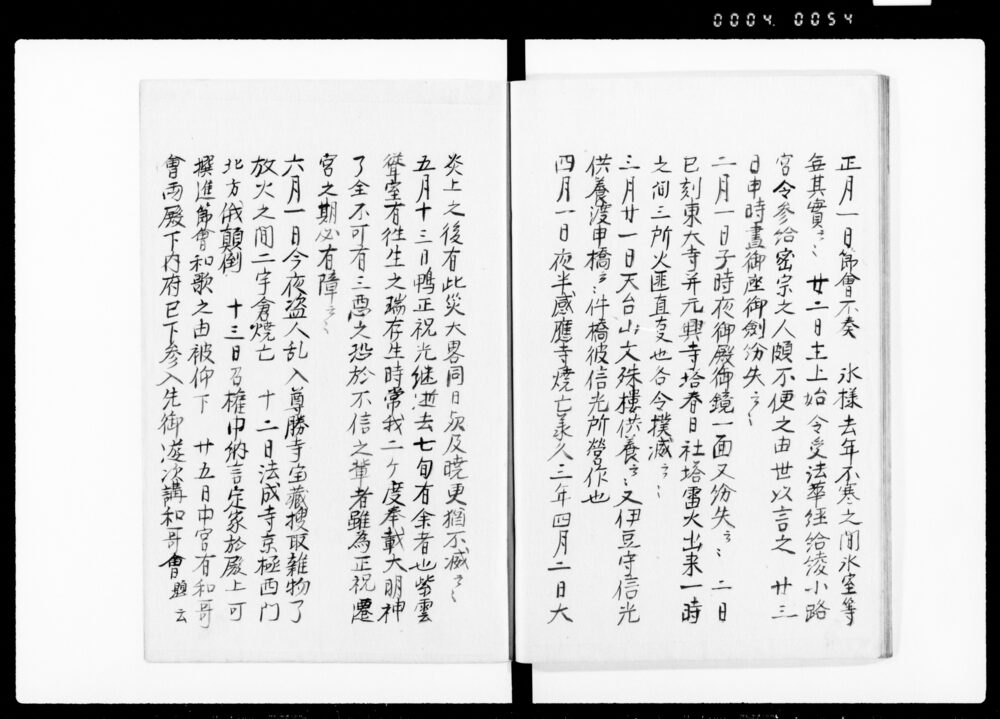 0004. 0054
正月一日節會不奏　氷様去年不寒之間氷室等
每其實云々　廿二日主上始令受法華経給綾小路
宮令参給密宗之人頗不便之由世以言之　廿三
日申時晝御座御劔紛失云々
二月一日子時夜御殿御鏡一面又紛失云々　二日
巳刻東大寺并元興寺塔春日社塔雷火出来一時
之間三所火匪直也各令撲滅云々
三月廿一日天台山文殊樓供養云々又伊豆守信光
供養渡申橋云々件橋彼信光所營作也
四月一日夜半感應寺焼亡承久三年四月二日大
炎上之後有此災大畧同日欤及暁更猶不滅云々
五月十三日鴨正祝光継逝去七旬有余者也紫雲
聳室有往生之瑞存生時常我二ケ度奉載大明神
了全不可有三悪之恐於不信之輩者雖為正祝遷
宮之期必有障云々
六月一日今夜盗人乱入尊勝寺宝蔵捜取雑物了
放火之間二宇倉焼亡　十二日法成寺京極西門
北方俄顛倒　十三日召權中納言定家於殿上可
撰進節會和歌之由被仰下　廿五日中宮有和哥
會両殿下内府已下参入先御遊次講和哥會題云